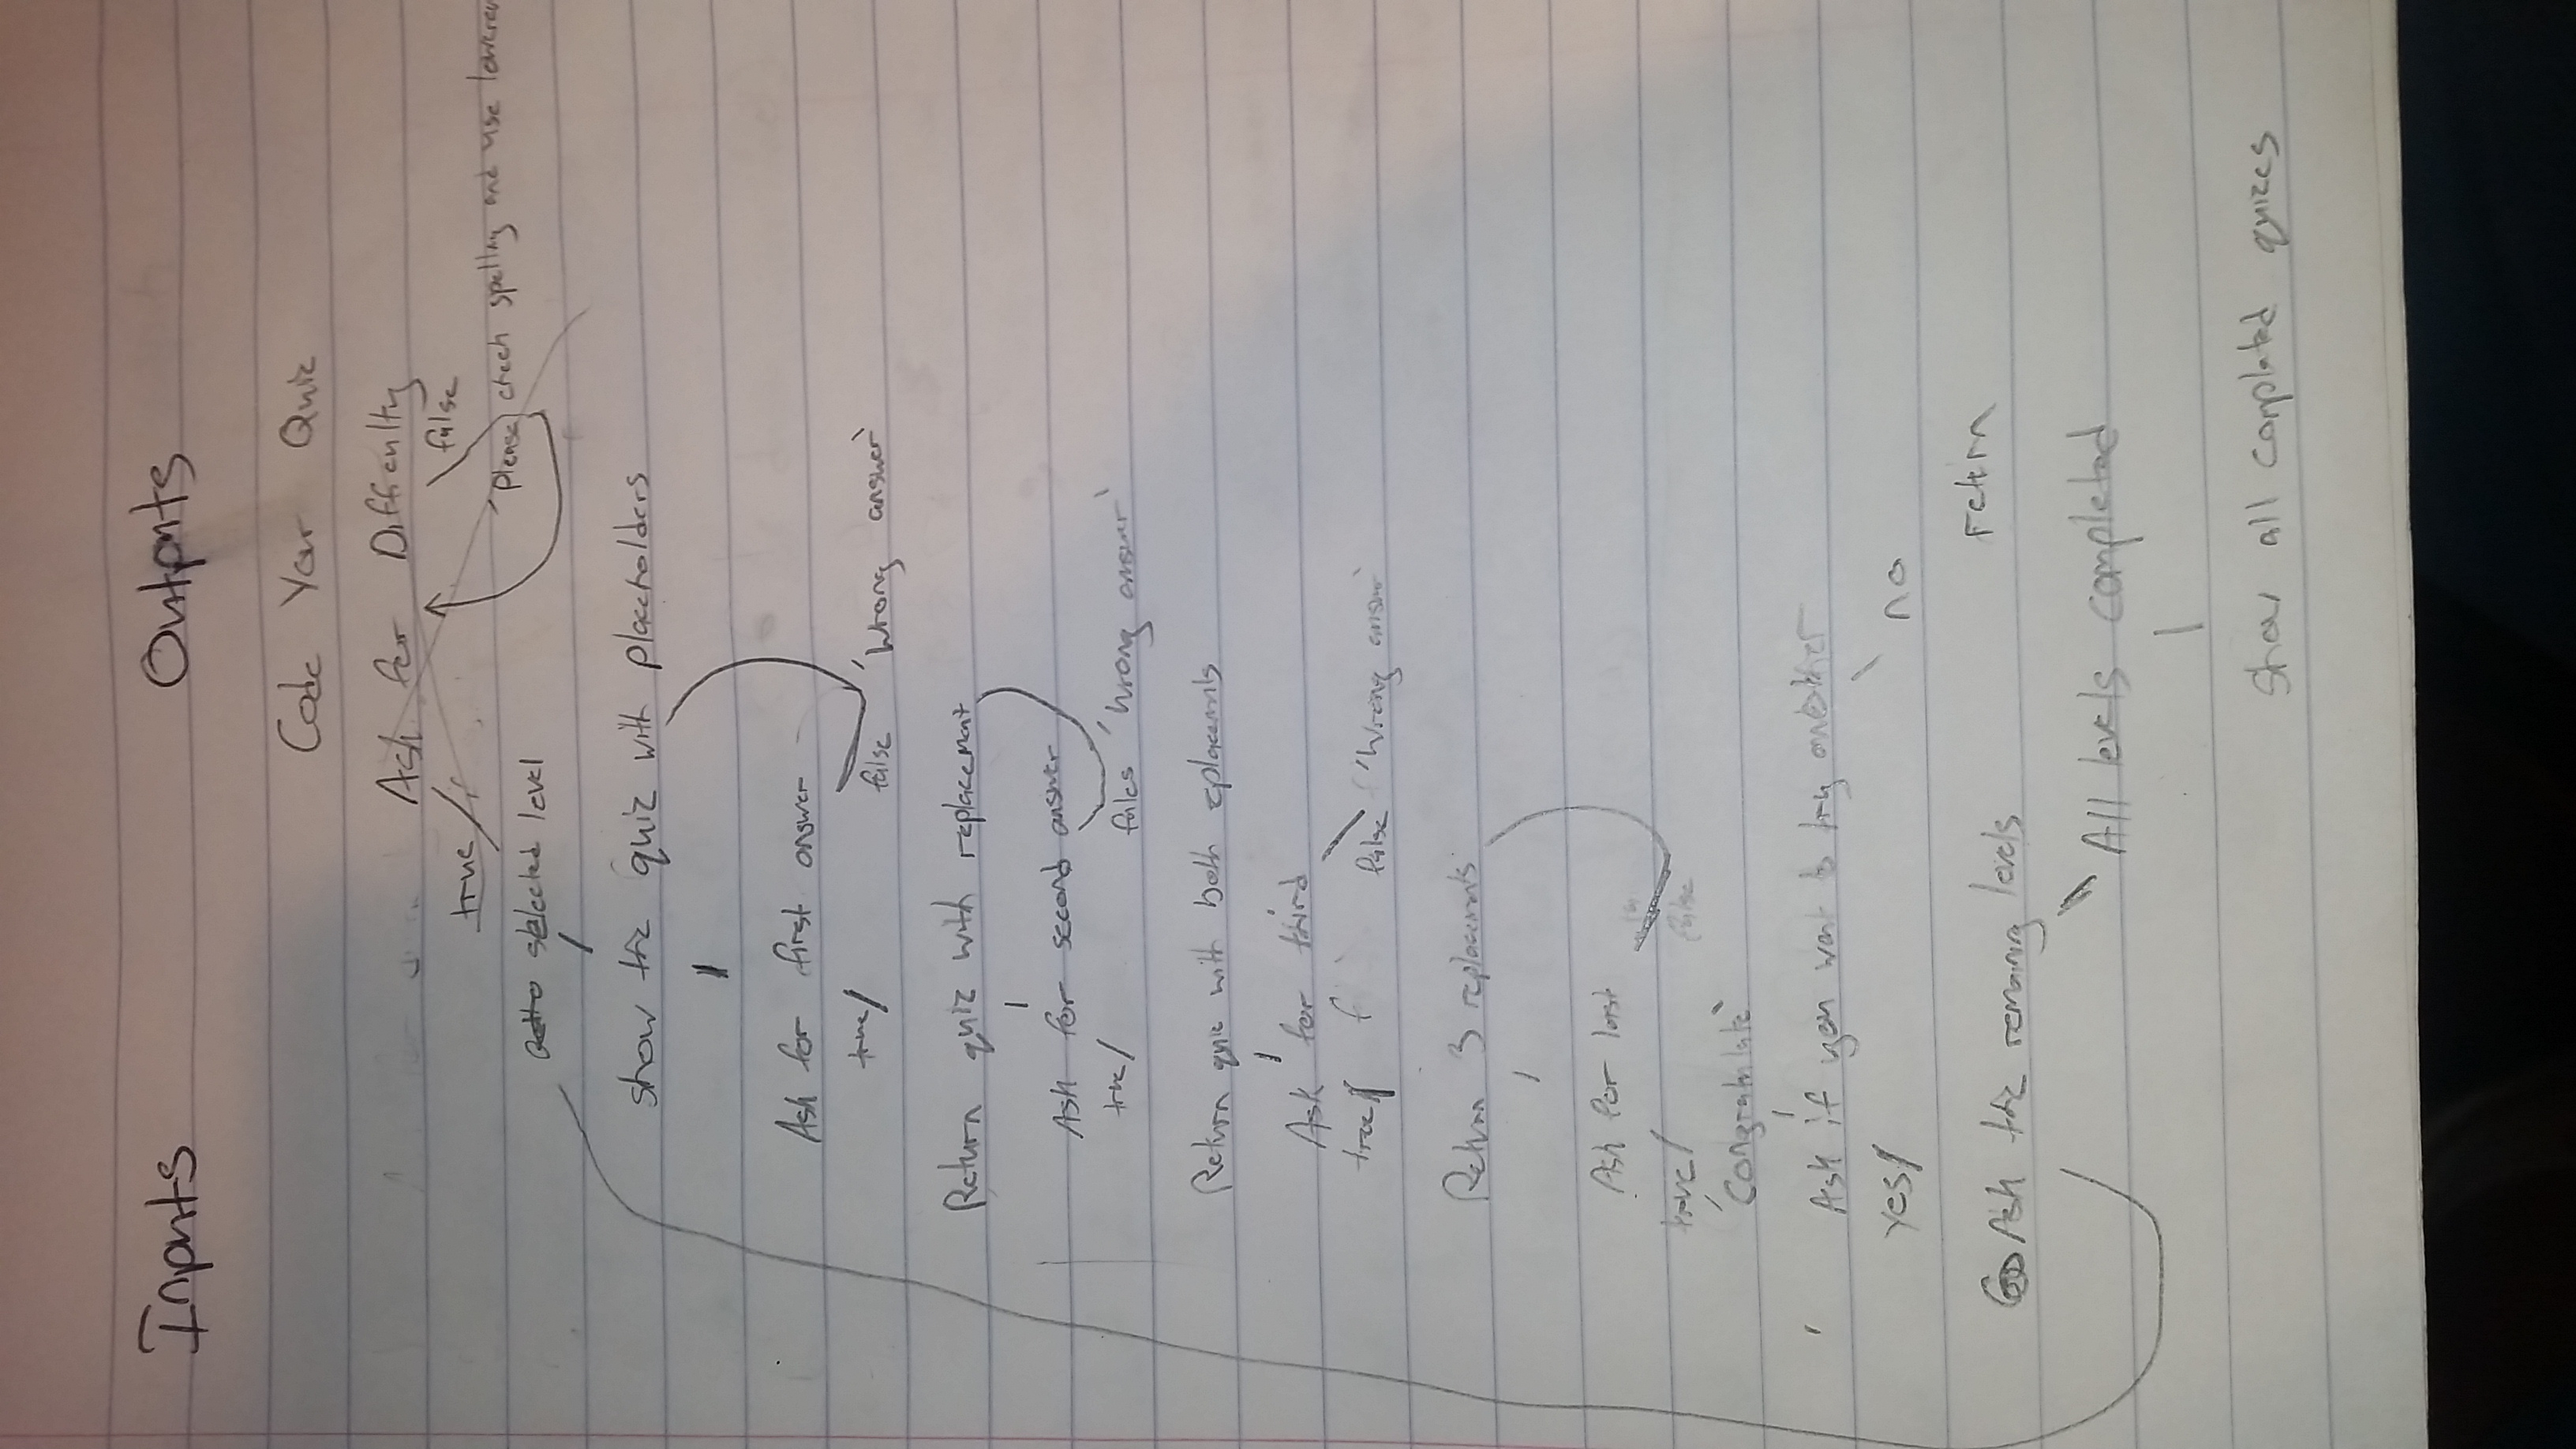 Inputs Outputs
Code Your Quiz
Ask for Difficulty
true false
'Please check spelling and use
selected level
show the quiz with placeholders
Ask for first answer
true false 'Wrong answer'
Return quiz with replacement
Ask for second answer
true fales 'Wrong answer'
Return quiz with both replacements
Ask for third
true f false 'Wrong answer'
Return 3 replacements
Ask for last
true false
'Congratulate'
Ask if you want to try another
yes no
return
Ask the remaining levels
All levels completed
Show all completed quizes